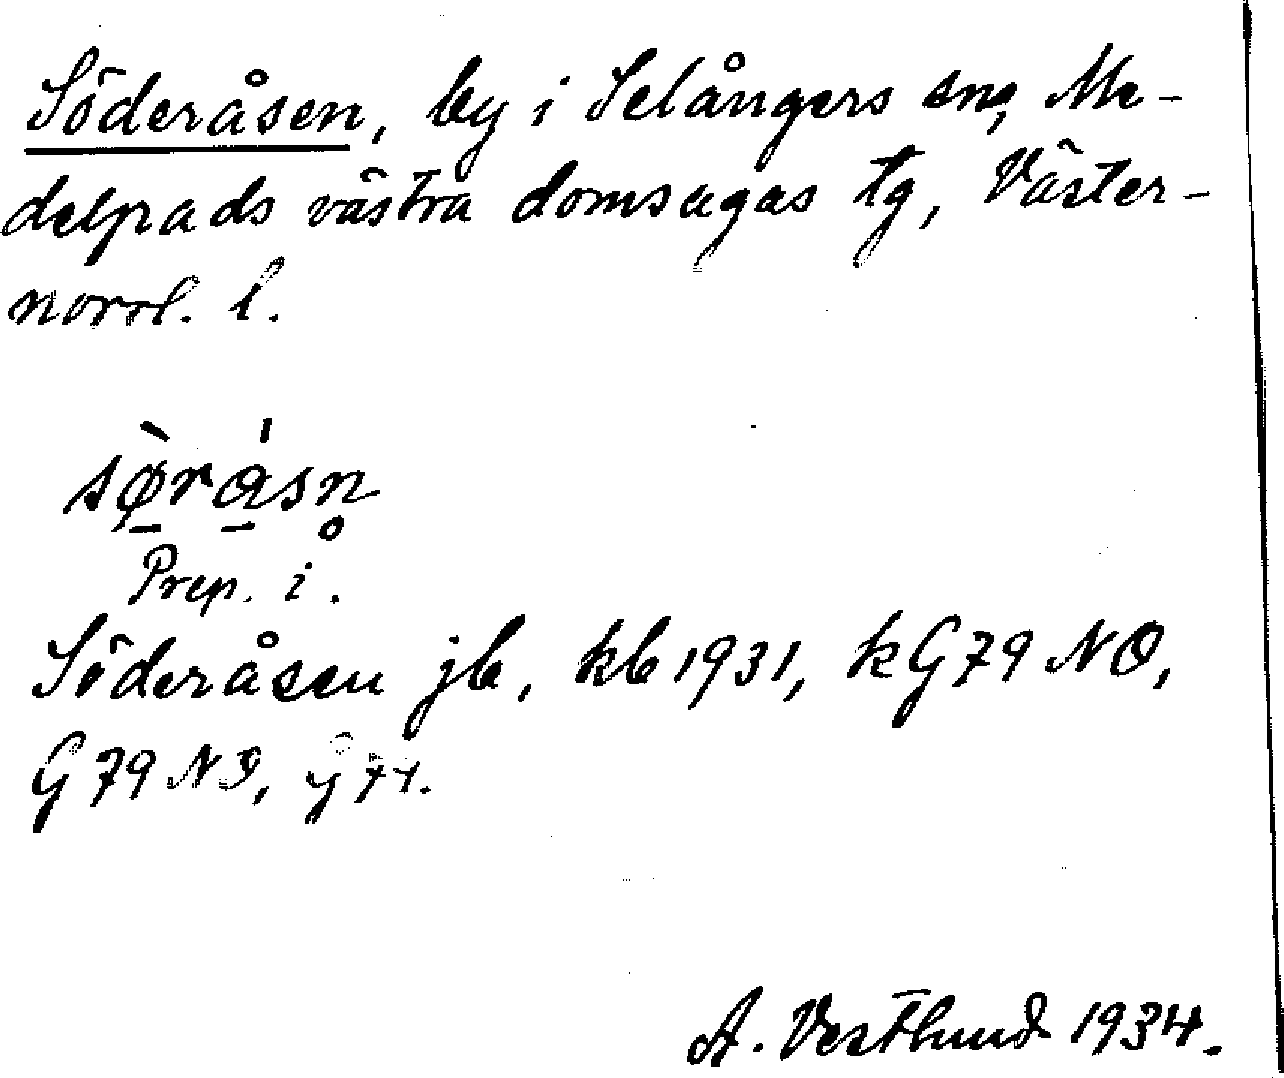 Söderåsen, by i Selångers sn, Me-
delpads västra domsagas tg, Väster-
norrl. l.
sø̀ra̍sn̥
Prep. i.
Söderåsen jb, kb 1931, kG79 NO,
G79 NO,
A. Vestlund 1934.